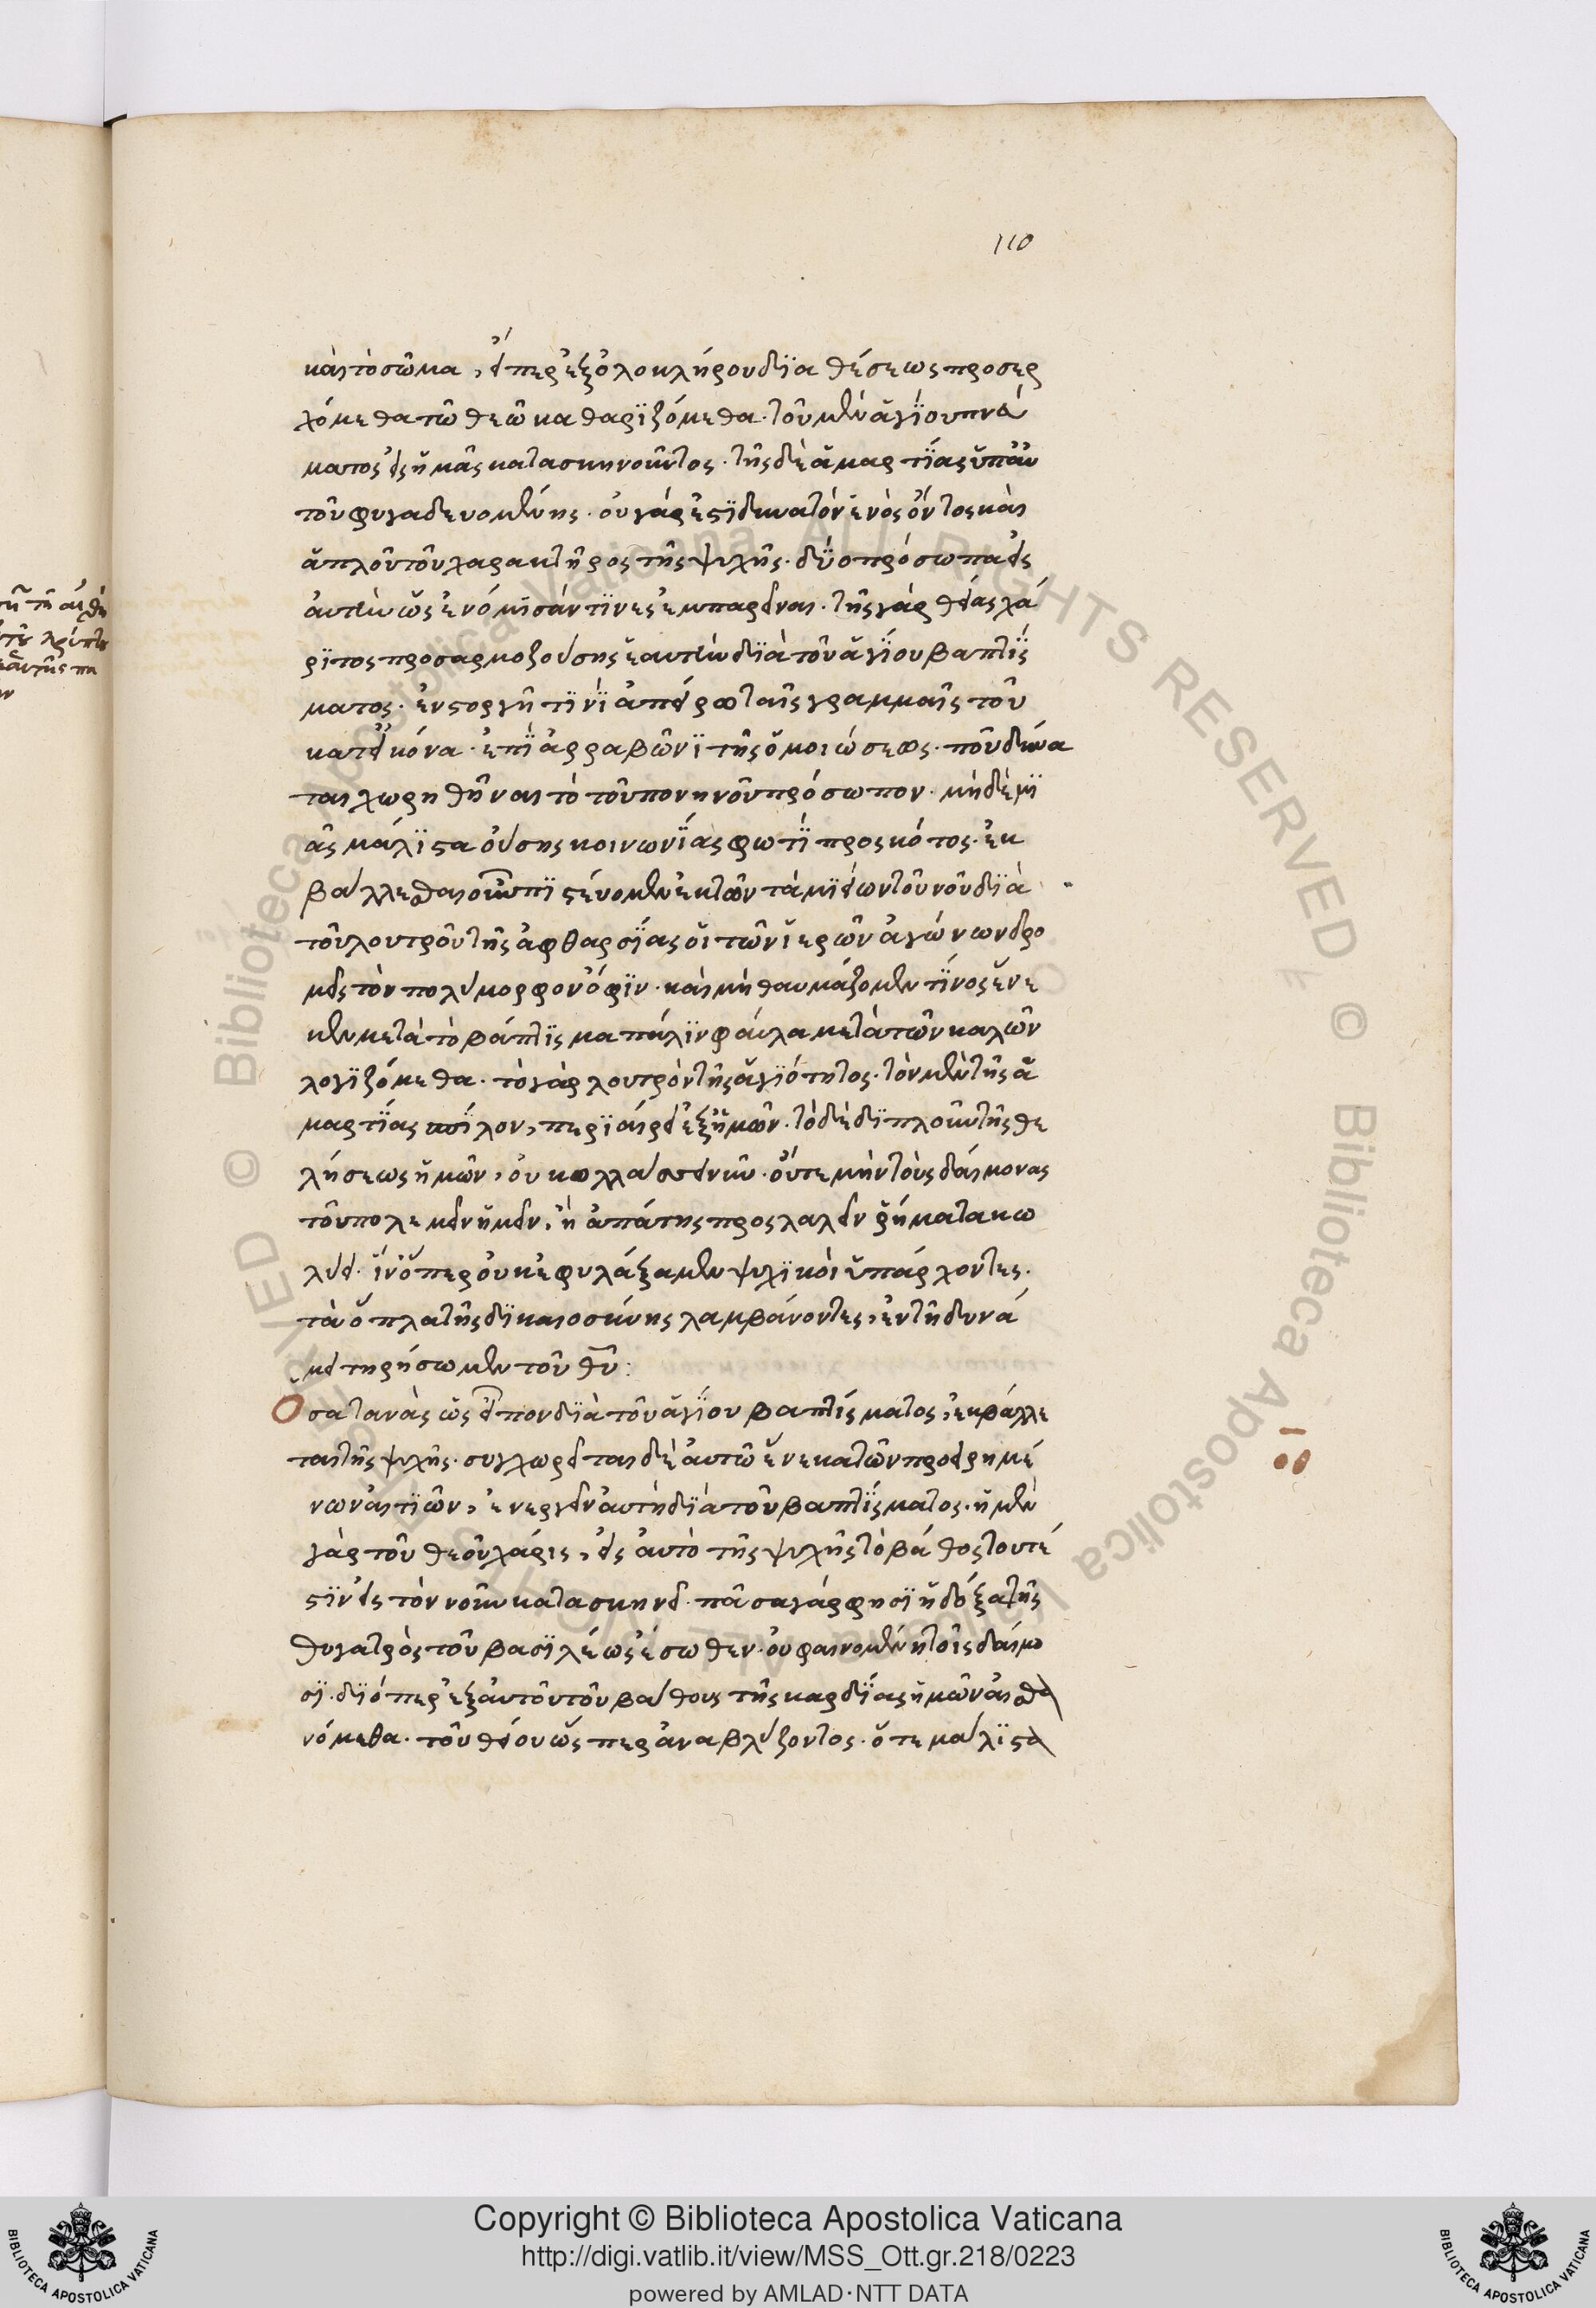 110
καὶ τὸ σῶμα, εἴπερ ἐξ ὁλοκλήρου διαθέσεως προσερ
χόμεθα τῶ θεῶ καθαριζόμεθα· τοῦ μὲν ἁγίου πνεύ
ματος εἰς ἡμᾶς κατασκηνοῦντος· τῆς δὲ ἁμαρτίας ὑπ' αὐ
τοῦ φυγαδευομένης· οὐ γάρ ἐστι δυνατὸν ἑνὸς ὄντος καὶ
ἁπλοῦ τοῦ χαρακτῆρος τῆς ψυχῆς· δύο πρόσωπα εἰς
αὐτὴν ὡς ἐνόμισάν τινες ἐμπαρεῖναι· τῆς γὰρ θείας χά
ριτος προσαρμοζούσης ἑαυτὴν διὰ τοῦ ἁγίου βαπτίσ
ματος· ἐν στοργῆ τινὶ ἀπείρω ταῖς γραμμαῖς τοῦ
κατ' εἰκόνα· ἐπὶ ἀρραβῶνι τῆς ὁμοιώσεως· ποῦ δύνα
ται χωρηθῆναι τὸ τοῦ πονηροῦ πρόσωπον· μηδὲ μι
ᾶς μάλιστα οὔσης κοινωνίας φωτὶ προς κότος· ἐκ
βάλλεσθαι οὖν πιστεύομεν ἐκ τῶν ταμιείων τοῦ νοῦ διὰ
τοῦ λουτροῦ τῆς ἀφθαρσίας οἱ τῶν ἱερῶν ἀγώνων δρο
μεῖς τὸν πολύμορφον ὄφιν· καὶ μὴ θαυμάζομεν τίνος ἕνε
κεν μετὰ τὸ βάπτισμα πάλιν φαύλα μετὰ τῶν καλῶν
λογιζόμεθα· τὸ γὰρ λουτρὸν τῆς ἁγιότητος· τὸν μὲν τῆς ἁ
μαρτίας σπίλον, περιαιρεῖ ἐξ ἡμῶν· τὸ δὲ διπλοῦν τῆς θε
λήσεως ἡμῶν, οὐκ ἀλλάσσει νῦν· οὔτε μὴν τοὺς δαίμονας
τοῦ πολεμεῖν ἡμεῖν, ἢ ἀπάτης προσλαλεῖν ῥήματα κω
λύει· ἵν' ὅπερ οὐκ ἐφυλάξαμεν ψυχικοὶ ὑπάρχοντες·
τὰ ὅπλα τῆς δικαιοσύνης λαμβάνοντες, ἐν τῆ δυνά
μει τηρήσωμεν τοῦ θυ:
Ὁ σατανὰς ὡς εἶπον διὰ τοῦ ἁγίου βαπτίσματος, ἐκβάλλε
ται τῆς ψυχῆς· συγχωρεῖται δὲ αὐτῶ ἕνεκα τῶν προειρημέ
νων αἰτιῶν, ἐνεργεῖν αὐτὴ διὰ τοῦ βαπτίσματος· ἡ μὲν
γὰρ τοῦ θεοῦ χάρις, εἰς αὐτὸ τῆς ψυχῆς τὸ βάθος τουτέ
στιν εἰς τὸν νοῦν κατασκηνεῖ· πᾶσα γάρ φησι ἡ δόξα τῆς
θυγατρὸς τοῦ βασιλέως ἔσωθεν· οὐ φαινομένη τοῖς δαίμο
σι· διόπερ ἐξ αὐτοῦ τοῦ βάθους τῆς καρδίας ἡμῶν αἰσθα
νόμεθα· τοῦ θείου ὥσπερ ἀναβλύζοντος· ὅτε μάλιστα
Copyright © Biblioteca Apostolica Vaticana
http://digi.vatlib.it/view/MSS_Ott.gr.218/0223
powered by AMLAD·NTT DATA
BIBLIOTECA APOSTOLICA VATICANA
BIBLIOTECA APOSTOLICA VATICANA